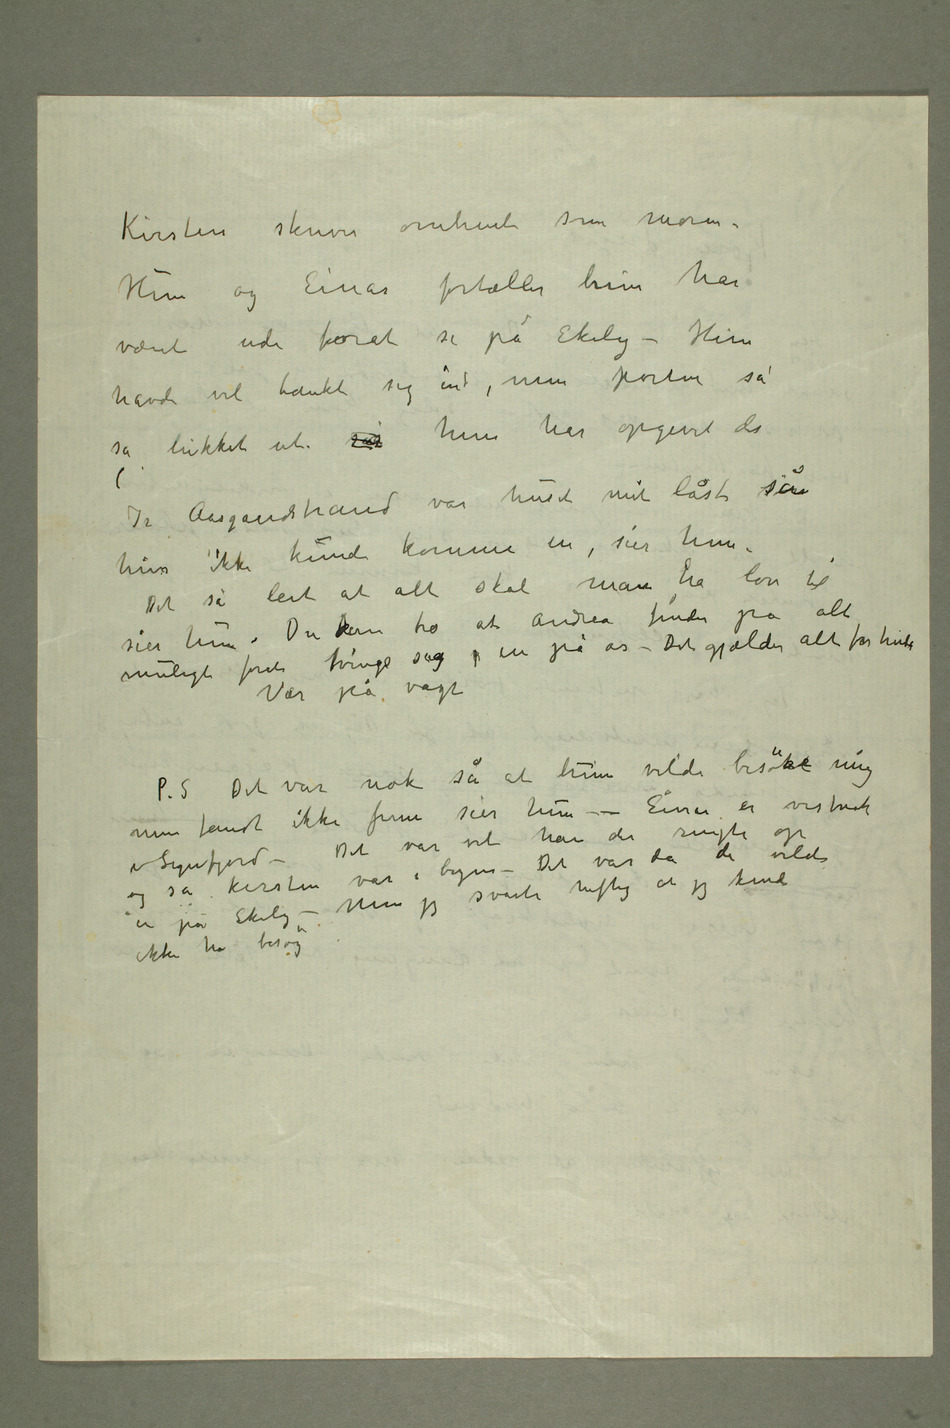 Kirsten skriver omtrent som moren.
Hun og Einar fortæller hun har
været ude forat se på Ekely – Hun
havde vel tænkt sig ind, men porten så
sa lukket ut. hun har opgevet de
(
I Aasgaardstrand var huset mit låst så
hun ikke kunde komme in, sier hun.
Det så leit at alt skal man ha lov til
sier hun. Du kan tro at Andrea finder på alt
muligt forat tvinge sig in på os – Det gjælder alt for hende
Vær på vagt
P.S Det var nok så at hun vilde besöke mig
men fandt ikke frem sier hun –– Einar er vistnok
i Sognfjord – Det var vel han der ringte op
og sa Kirsten var i byen – Det var da de vilde
in på Ekely – Men jeg svarte heftig at jeg kunde
ikke ha besög